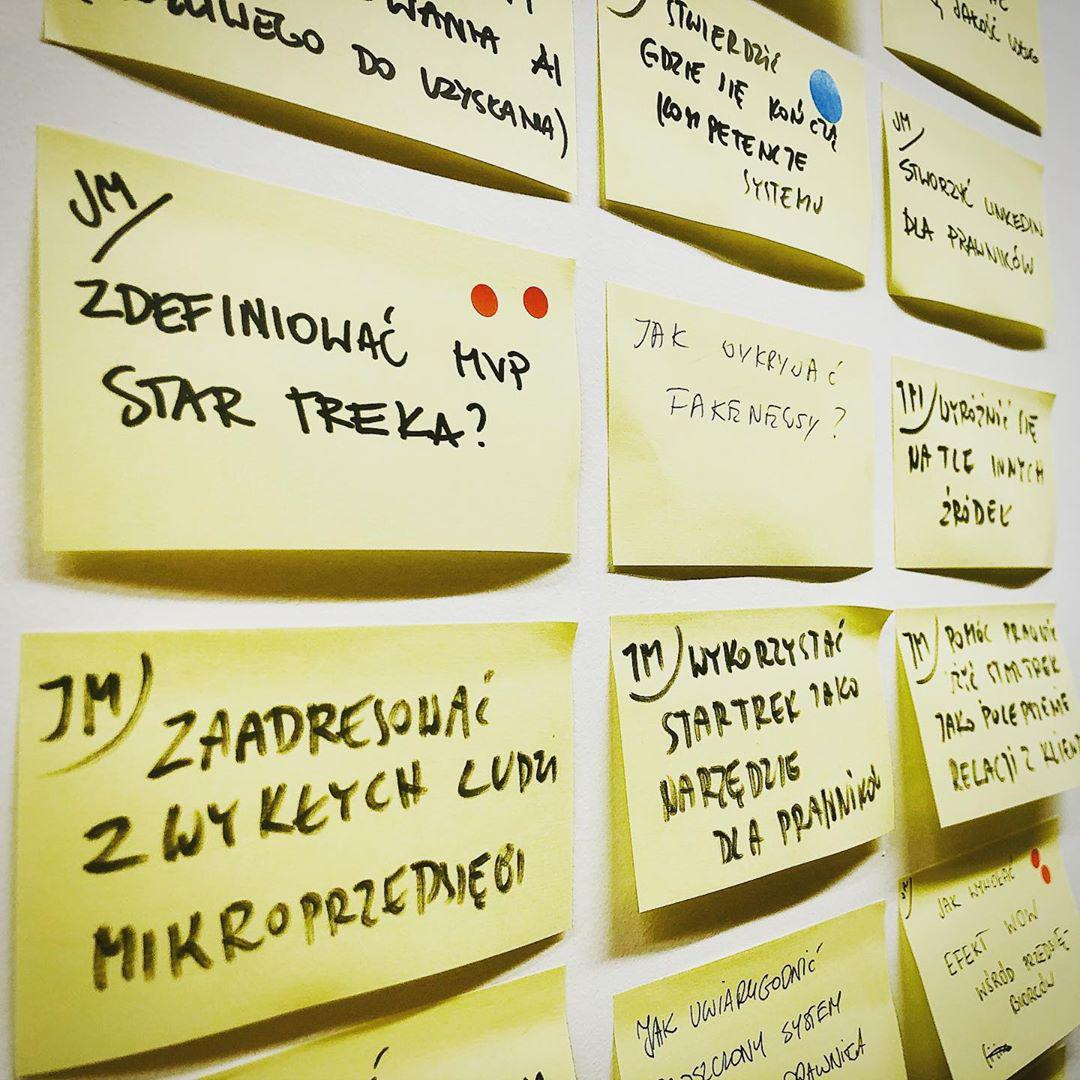 DO UZYSKANIA)
AI
STWIERDZIĆ
GDZIE SIĘ KOŃCZĄ
KOMPETENCJE
SYSTEMU
JAKOŚĆ
JM/
STWORZYĆ LINKEDIN
DLA PRAWNIKÓW
JM/
ZDEFINIOWAĆ MVP
STAR TREKA?
JAK WYKRYWAĆ
FAKENEWSY?
JM/WYRÓŻNIĆ SIĘ
NA TLE INNYCH
ŹRÓDEŁ
JM)
ZAADRESOWAĆ
ZWYKŁYCH LUDZI
MIKROPRZEDSIĘBI
JM)WYKORZYSTAĆ
STARTREK JAKO
NARZĘDZIE
DLA PRAWNIKÓW
JM) POMÓC
STARTREK
JAKO
RELACJI Z KLIENT
JM
JAK WYWOŁAĆ
EFEKT WOW
WŚRÓD PRZEDSIĘ-
BIORCÓW
JAK UWIARYGODNIĆ
SYSTEM
PRAWNICA